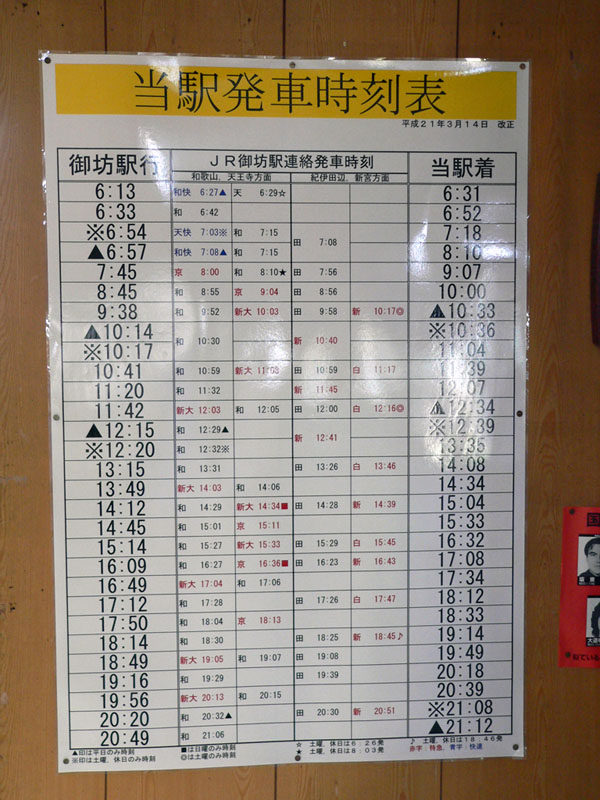 当駅発車時刻表
平成21年3月14日 改正
御坊駅行 JR御坊駅連絡発車時刻 当駅着
和歌山, 天王寺方面 紀伊田辺, 新宮方面
6:13 和快 6:27▲ 天 6:29☆ 6:31
6:33 和 6:42 6:52
※6:54 天快 7:03※ 和 7:15 田 7:08 7:18
▲6:57 和快 7:08▲ 和 7:15 8:10
7:45 京 8:00 和 8:10★ 田 7:56 9:07
8:45 和 8:55 京 9:04 田 8:56 10:00
9:38 和 9:52 新大 10:03 田 9:58 新 10:17◎ ▲10:33
▲10:14 和 10:30 新 10:40 ※10:36
※10:17 11:04
10:41 和 10:59 新大 11:03 田 10:59 白 11:17 11:39
11:20 和 11:32 新 11:45 12:07
11:42 新大 12:03 和 12:05 田 12:00 白 12:16◎ ▲12:34
▲12:15 和 12:29▲ 新 12:41 ※12:39
※12:20 和 12:32※ 13:35
13:15 和 13:31 田 13:26 白 13:46 14:08
13:49 新大 14:03 和 14:06 14:34
14:12 和 14:29 新大 14:34■ 田 14:28 新 14:39 15:04
14:45 和 15:01 京 15:11 15:33
15:14 和 15:27 新大 15:33 田 15:29 白 15:45 16:32
16:09 和 16:27 京 16:36■ 田 16:23 新 16:43 17:08
16:49 新大 17:04 和 17:06 17:34
17:12 和 17:28 田 17:26 白 17:47 18:12
17:50 和 18:04 京 18:13 18:33
18:14 和 18:30 田 18:25 新 18:45♪ 19:14
18:49 新大 19:05 和 19:07 田 19:08 19:49
19:16 和 19:29 田 19:39 20:18
19:56 新大 20:13 和 20:15 20:39
20:20 和 20:32▲ 田 20:30 新 20:51 ※21:08
20:49 和 21:06 ▲21:12
▲印は平日のみ時刻 ■は日曜のみ時刻 ☆ 土曜, 休日は6:26発 ♪ 土曜, 休日は18:46発
※印は土曜, 休日のみ時刻 ◎は土曜のみ時刻 ★ 土曜, 休日は8:03発 赤字 特急, 青字 快速
似ている